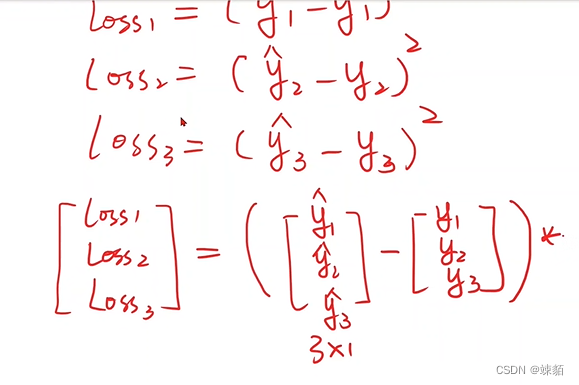 Loss₁ = (ŷ₁ − y₁)
Loss₂ = (ŷ₂ − y₂)²
Loss₃ = (ŷ₃ − y₃)²
[Loss₁ Loss₂ Loss₃] = ([ŷ₁ ŷ₂ ŷ₃] − [y₁ y₂ y₃])*.
3×1
CSDN @竦貊